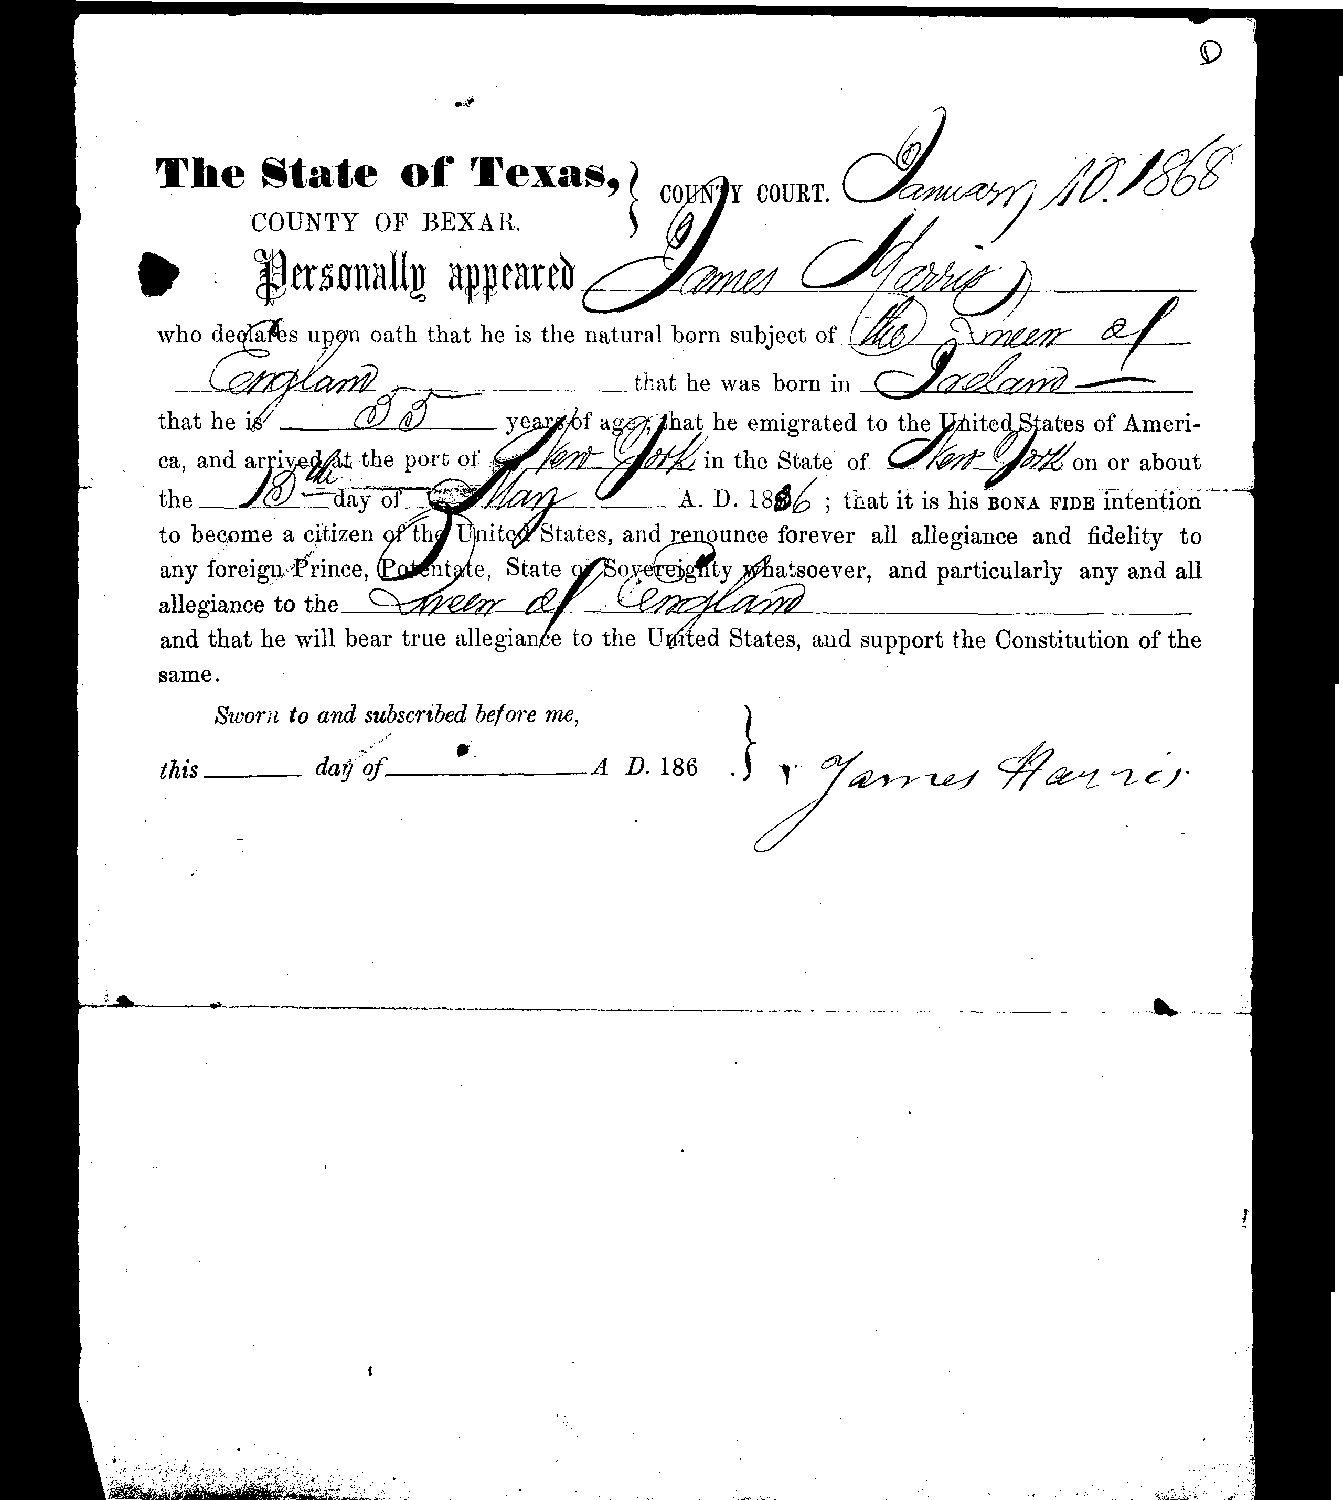 The State of Texas, } COUNTY COURT. January 10. 1868
COUNTY OF BEXAR.
Personally appeared James Harris
who declares upon oath that he is the natural born subject of the Queen of
England that he was born in Ireland
that he is 55 years of age; that he emigrated to the United States of Ameri-
ca, and arrived at the port of New York in the State of New York on or about
the 18th day of May A. D. 1836 ; that it is his BONA FIDE intention
to become a citizen of the United States, and renounce forever all allegiance and fidelity to
any foreign Prince, Potentate, State or Sovereignty whatsoever, and particularly any and all
allegiance to the Queen of England
and that he will bear true allegiance to the United States, and support the Constitution of the
same.
Sworn to and subscribed before me,
this day of A D. 186 . } James Harris